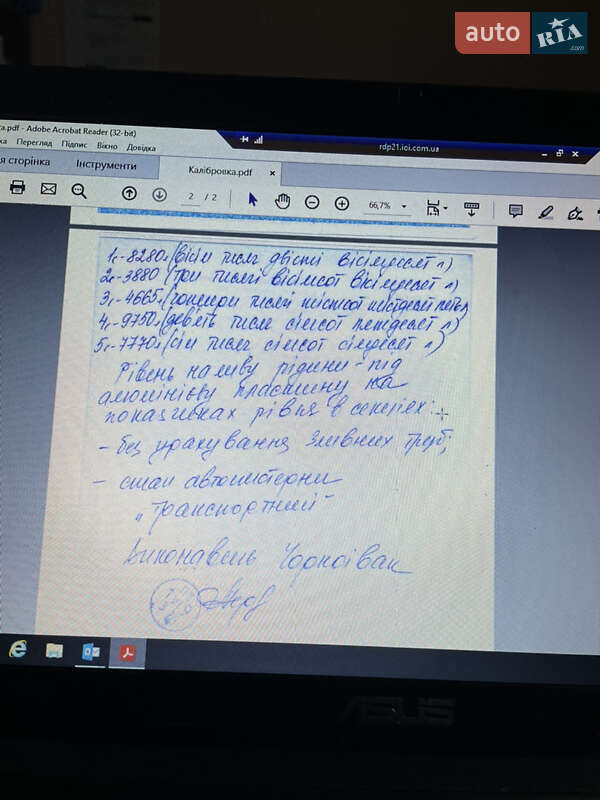 auto RIA .com
ка.pdf - Adobe Acrobat Reader (32-bit)
ка Перегляд Підпис Вікно Довідка
rdp21.ici.com.ua
я сторінка Інструменти Калібровка.pdf ×
2 / 2 66,7%
1с-8280л(вісім тисяч двісті вісімдесят л)
2с-3880 (три тисячі вісімсот вісімдесят л)
3с-4665л(чотири тисячі шістсот шістдесят пять л)
4с-9750л(девять тисяч сімсот пятдесят л)
5с-7770л(сім тисяч сімсот сімдесят л)
Рівень наливу рідини - під
алюмінієву пластину на
показниках рівня в секціях:
- без урахування зливних труб;
- стан автоцистерни
„транспортний"
Виконавець Чорноіван
ASUS